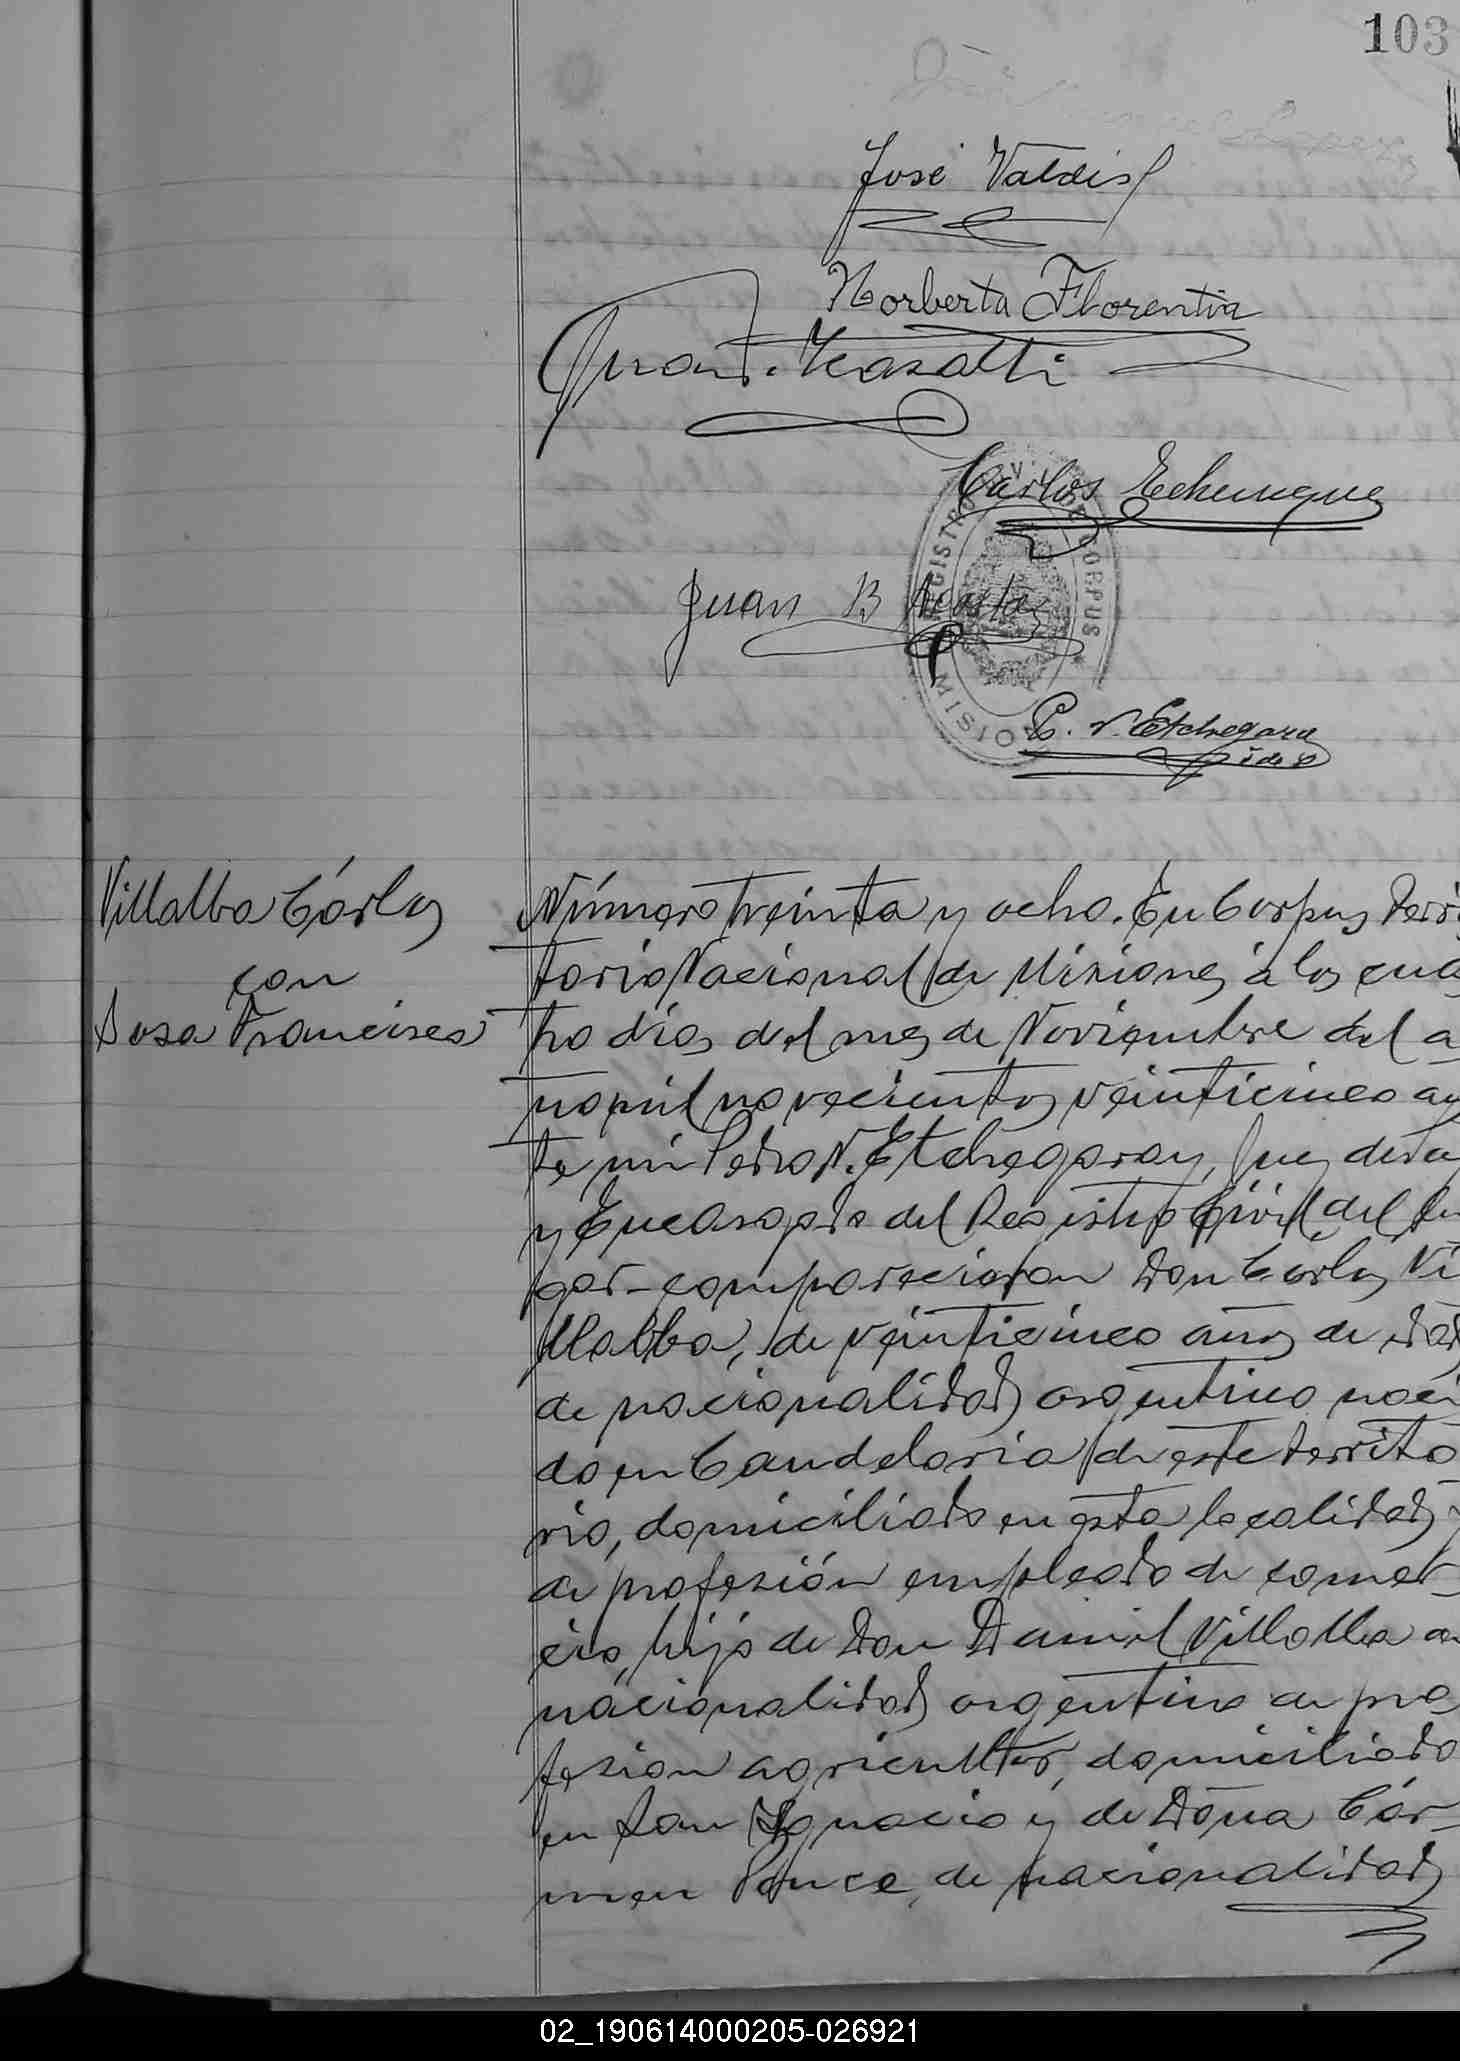 103
José Valdes
Norberta Florentin
Juan Casatti
Carlos Echenique
REGISTRO CIVIL DE CORPUS
MISIONES
Juan B Acosta
P. N. Etchegaray
Villalba Cárlos
con
Sosa Francisca
Número treinta y ocho. En Corpus Terri
torio Nacional de Misiones á los cua
tro días del mes de Noviembre del a
no mil novecientos veinticinco an
te mi Pedro N. Etchegaray, Juez de Paz
y Encargado del Registro Civil del lu
gar comparecieron Don Carlos Vi
llalba, de veinticinco años de edad
de nacionalidad argentino naci
do en Candelaria de este territo
rio, domiciliado en esta localidad y
de profesión empleado de comer-
cio, hijo de Don Daniel Villalba de
nacionalidad argentino de pro
fesion agricultor, domiciliado
en San Ignacio y de Doña Cár-
men Ponce, de nacionalidad
02_190614000205-026921